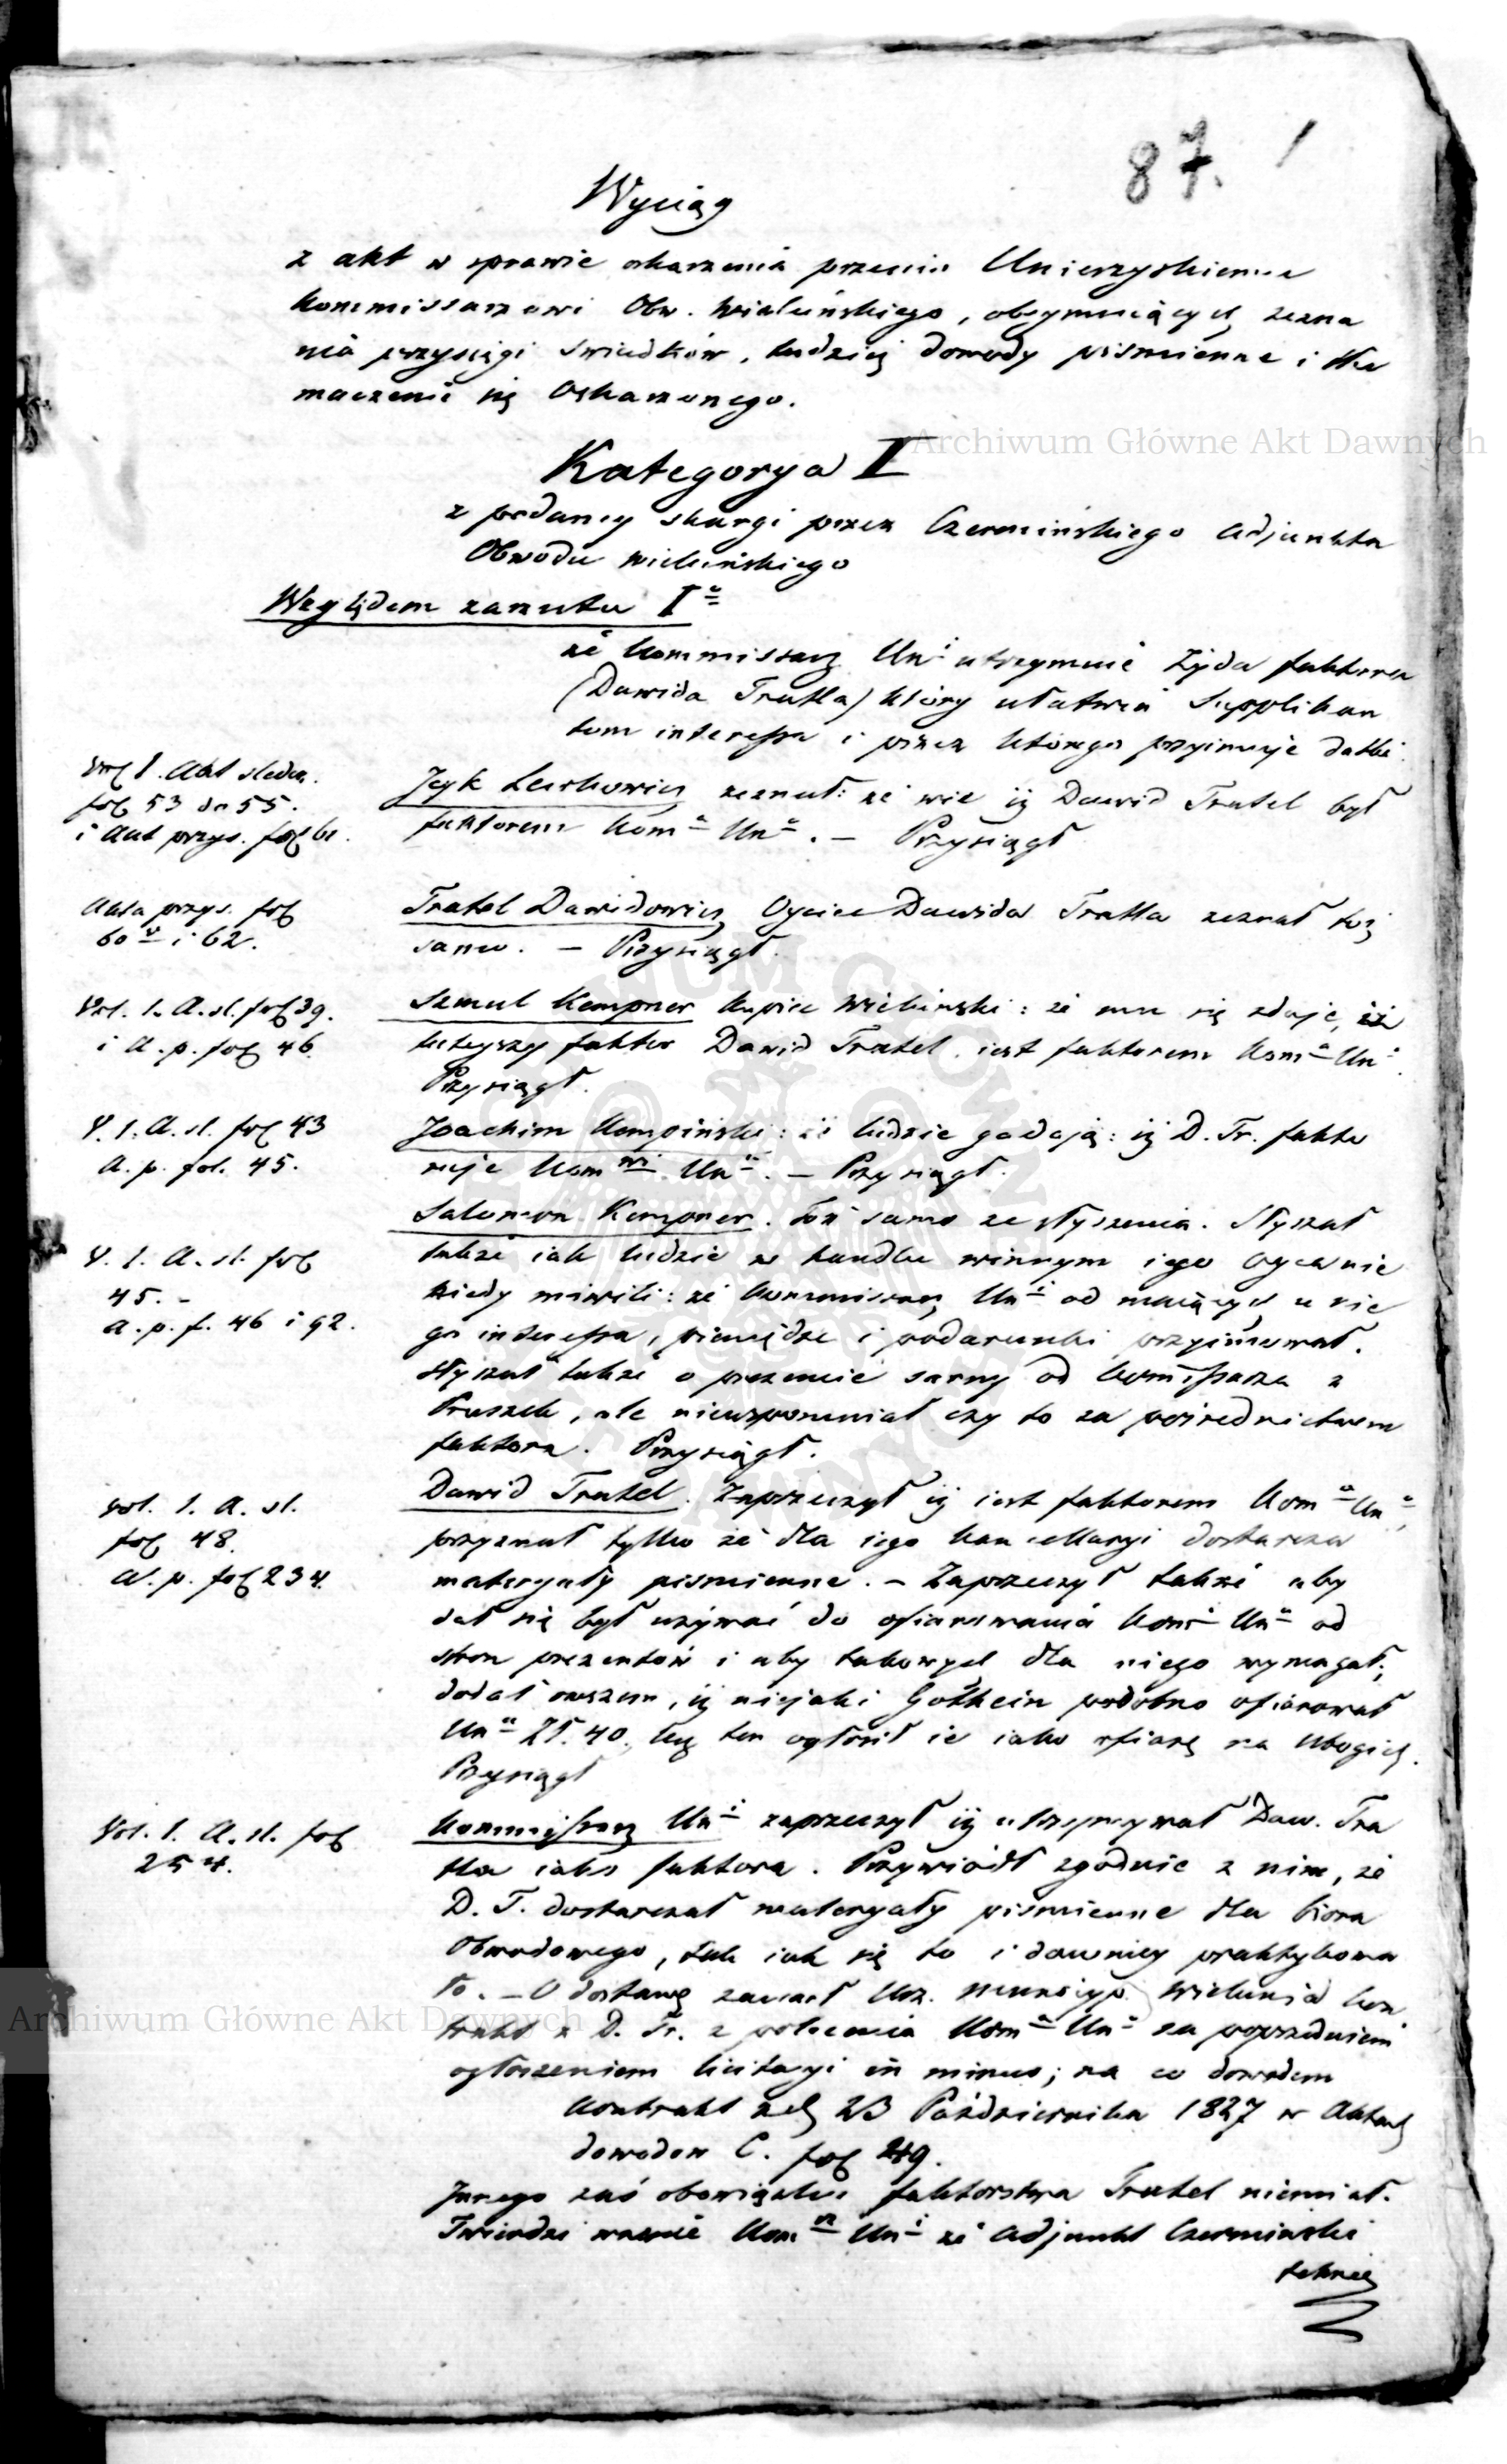 87. /
Wyciąg
z akt w sprawie oskarżenia przeciw Unierzyskiemu
Kommissarzowi Obw. Wieluńskiego, obeymuiący zezna
nia przysięgi świadków, tudzież dowody piśmienne i tłu
maczenie się Oskarżonego.
Kategorya I
z podaney skargi przez Czermińskiego Adjunkta
Obwodu Wieluńskiego
Względem zarzutu I°
że Kommissarz Un i utrzymuie Żyda faktora
(Dawida Trutla) który ułatwia Supplikan
tom interessa i przez którego przyimuje datki.
Vol I. Akt śledcz.
fol 53 do 55.
i Akt przys. fol 61.
Lewkowicz zeznał: że wie iż Dawid Trutel był
faktorem Kom a Un o. – Przysiągł
Akta przys. fol
60 v i 62.
Trutel Dawidowicz Oyciec Dawida Trutla zeznał toż
samo. – Przysiągł.
Vol. I. A. śl. fol 39.
i A. p. fol 46.
Szmul Kempner kupiec Wieluński: że mu się zdaje, iż
tuteyszy faktor Dawid Trutel iest faktorem Kom a Un o.
Przysiągł.
V. I. A. śl. fol 43
A. p. fol. 45.
Joachim Kempiński: że ludzie gadają: iż D. Tr. fakto
ruje Kom wi Un u. – Przysiągł.
V. I. A. śl. fol
45. –
A. p. f. 46 i 92.
Salomon Kempner. Toż samo ze słyszenia. Słyszał
także iak ludzie w handlu winnym iego Oyca nie
kiedy mówili: że Kommissarz Un i od maiących u nie
go interessa, pieniądze i podarunki przyimował.
Słyszał także o prezencie sarny od Kommissarza z
Praszek, ale niewspomniał czy to za pośrednictwem
faktora. Przysiągł.
Vol. I. A. śl.
fol 48.
A. p. fol 234.
Dawid Trutel. Zaprzeczył iż iest faktorem Kom a Un o,
przyznał tylko że dla iego kancellaryi dostarcza
materyały piśmienne. – Zaprzeczył także aby
dał się był używać do ofiarowania Kom Un u od
stron prezentów i aby takowych dla niego wymagał;
dodał owszem, iż niejaki podobno ofiarował
Un u Zł. 40., lecz ten ogłosił ie iako ofiarę na Ubogich.
Przysiągł
Vol. I. A. śl. fol
254.
Kommissarz Un i zaprzeczył iż utrzymywał Daw. Tru
tla iako faktora. Przywiódł zgodnie z nim, że
D. T. dostarczał materyały piśmienne dla biora
Obwodowego, tak iak się to i dawniey praktykowa
ło. – O dostawę zawarł Urz. Municyp. Wielunia kon
trakt z D. Tr. z polecenia Kom a Un o za poprzedniem
ogłoszeniem licitacyi in minus; na co dowodem
Kontrakt z d. 23 Października 1827 w Aktach
dowodow C. fol 249.
Innego zaś obowiązku faktorstwa Trutel niemiał.
Twierdzi Kom rz Un i że Adjunkt Czermiński